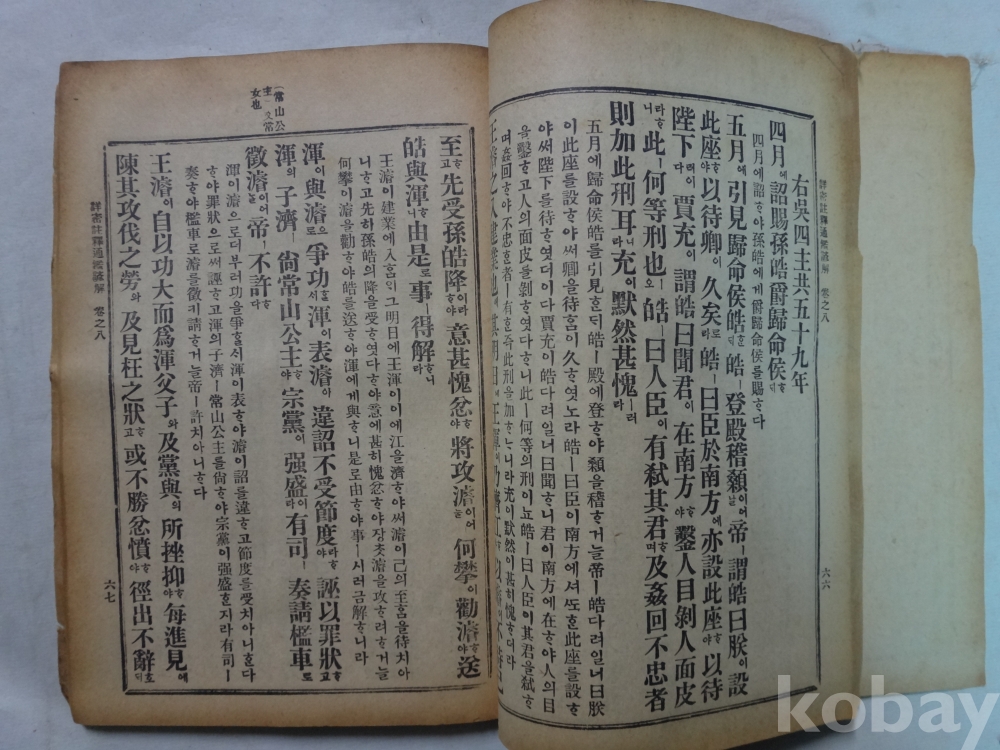 詳密註釋通鑑諺解 卷之八
六六
右吳四主共五十九年
四月에詔賜孫皓爵歸命侯하다
四月에詔하야孫皓에게爵歸命侯를賜하다
五月에引見歸命侯皓할새皓ㅣ登殿稽顙이어늘帝ㅣ謂皓曰朕이設
此座하야以待卿이久矣로라皓ㅣ曰臣於南方에亦設此座하야以待
陛下러이다賈充이謂皓曰聞君이在南方하야鑿人目剝人面皮
라하니此ㅣ何等刑也오皓ㅣ曰人臣이有弑其君하며及姦回不忠者
則加此刑耳니라充이默然甚愧러라
五月에歸命侯皓를引見하실새皓ㅣ殿에登하야顙을稽하거늘帝ㅣ皓다려일너曰朕
이此座를設하야써卿을待함이久하엿노라皓ㅣ曰臣이南方에셔또한此座를設하
야써陛下를待하엿더이다賈充이皓다려일너曰聞하니君이南方에在하야人의目
을鑿하고人의面皮를剝하엿다하니此ㅣ何等의刑이뇨皓ㅣ曰人臣이其君을弑하
며姦回하야不忠한者ㅣ有한즉此刑을加하느니라充이默然히甚히愧하더라
常山公
主
女也
至하고先受孫皓降이라하야意甚愧忿하야將攻濬이어늘何攀이勸濬하야送
皓與渾하니由是로事ㅣ得解하니라
王濬이建業에入함인그明日에王渾이이에江을濟하야써濬이己의至함을待치아
니하고先히孫皓의降을受하엿다하야意에甚히愧忿하야장찻濬을攻하려하거늘
何攀이濬을勸하야皓를送하야渾에게與하니是로由하야事ㅣ시러금解하니라
渾이與濬로爭功할세渾이表濬하야違詔不受節度라하야誣以罪狀하고
渾의子濟ㅣ尙常山公主하야宗黨이强盛이라有司ㅣ奏請檻車로
徵濬이어늘帝ㅣ不許하다
渾이濬으로더부러功을爭할세渾이表하야濬이詔를違하고節度를受치아니한다
하야罪狀으로써誣하고渾의子濟ㅣ常山公主를尙하야宗黨이强盛한지라有司ㅣ
奏하야檻車로濬을徵키請하거늘帝ㅣ許치아니하다
王濬이自以功大而爲渾父子와及黨與의所挫抑하야每進見에
陳其攻伐之勞와及見枉之狀하고或不勝忿憤하야徑出不辭호되
詳密註釋通鑑諺解 卷之八
六七
kobay